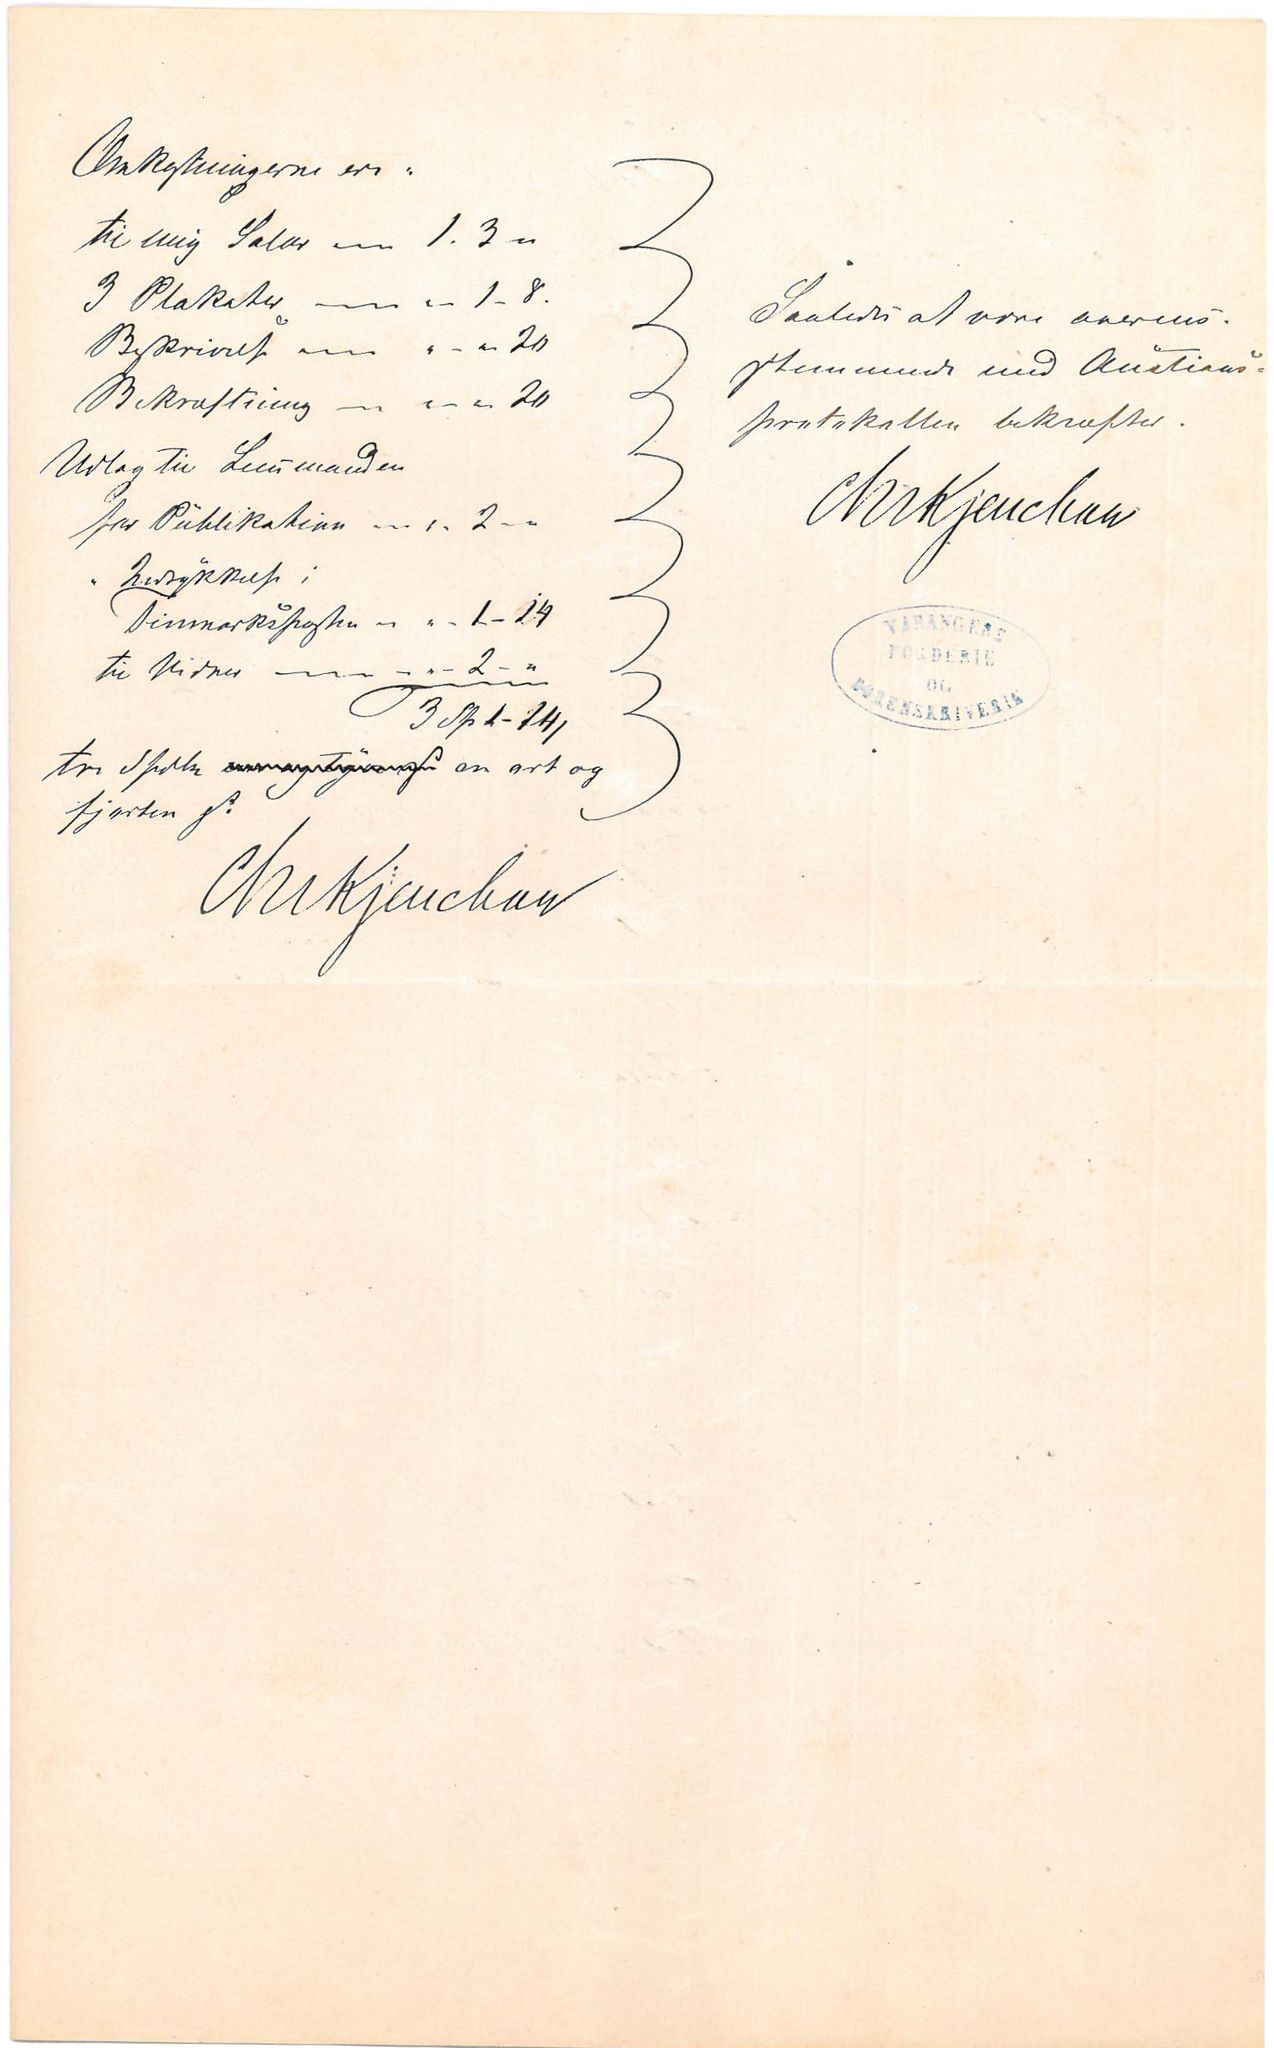 Omkostningerne ere:
til mig Salær — 1. 3 "
3 Plakater — " 1 - 8.
Beskrivelse — " - " 20
Bekræftning — " - " 20
Udlæg til Lensmanden
for Publikation — " - 2 - "
" Indrykkelse i
Finmarksposten — " - 1 - 14
til Vidner — " - 2 - "
3 Spd 1 - 14,
tre Spdlr en ort og
fjorten s.
Chr Kjenchow
Saaledes at være overens-
stemmende med Auctions-
protokollen bekræfter.
Chr Kjenchow
VARANGERS
FOGDERIE
OG
SORENSKRIVERIE